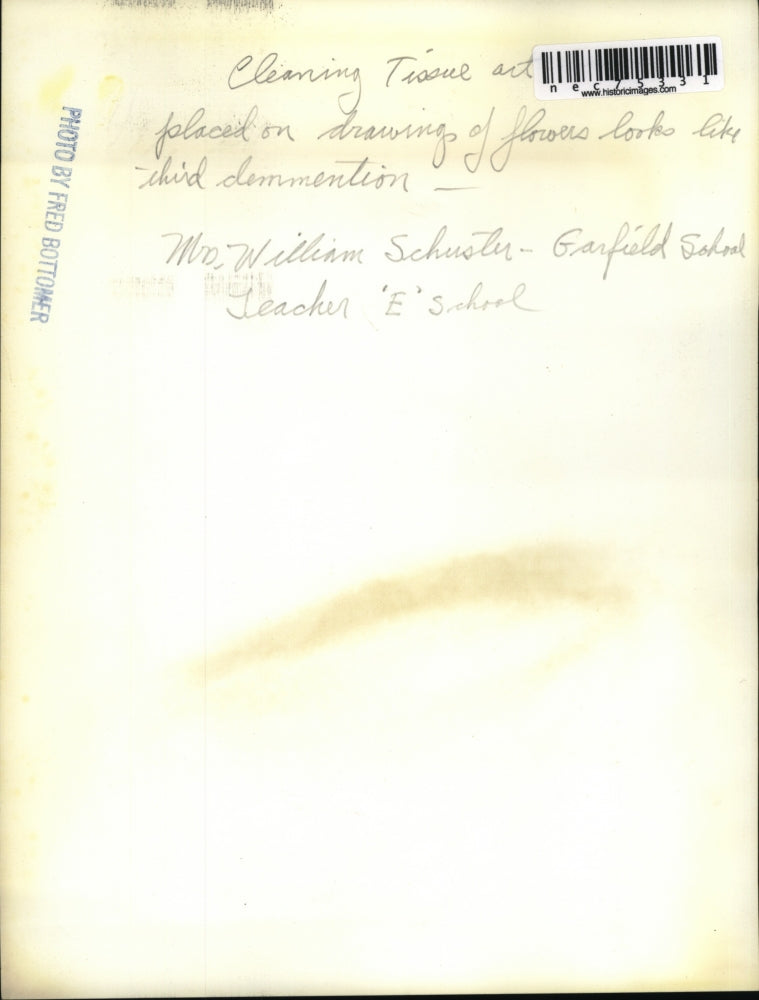 Cleaning Tissue art
nec75331
www.historicimages.com
placed on drawings of flowers looks like
third demmention —
Mrs. William Schuster - Garfield School
Teacher 'E' School
PHOTO BY FRED BOTTOMER